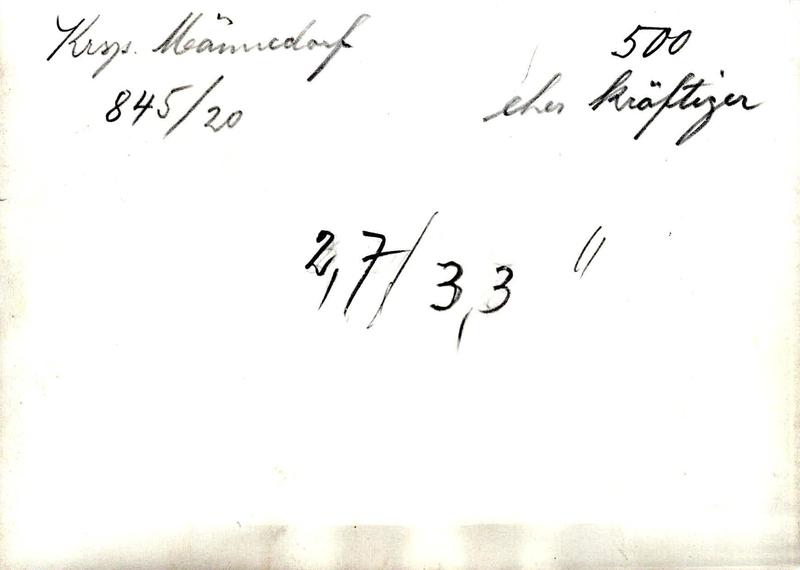 Krsp. Männedorf
845/20
500
eher kräftiger
2,7/3,3 "